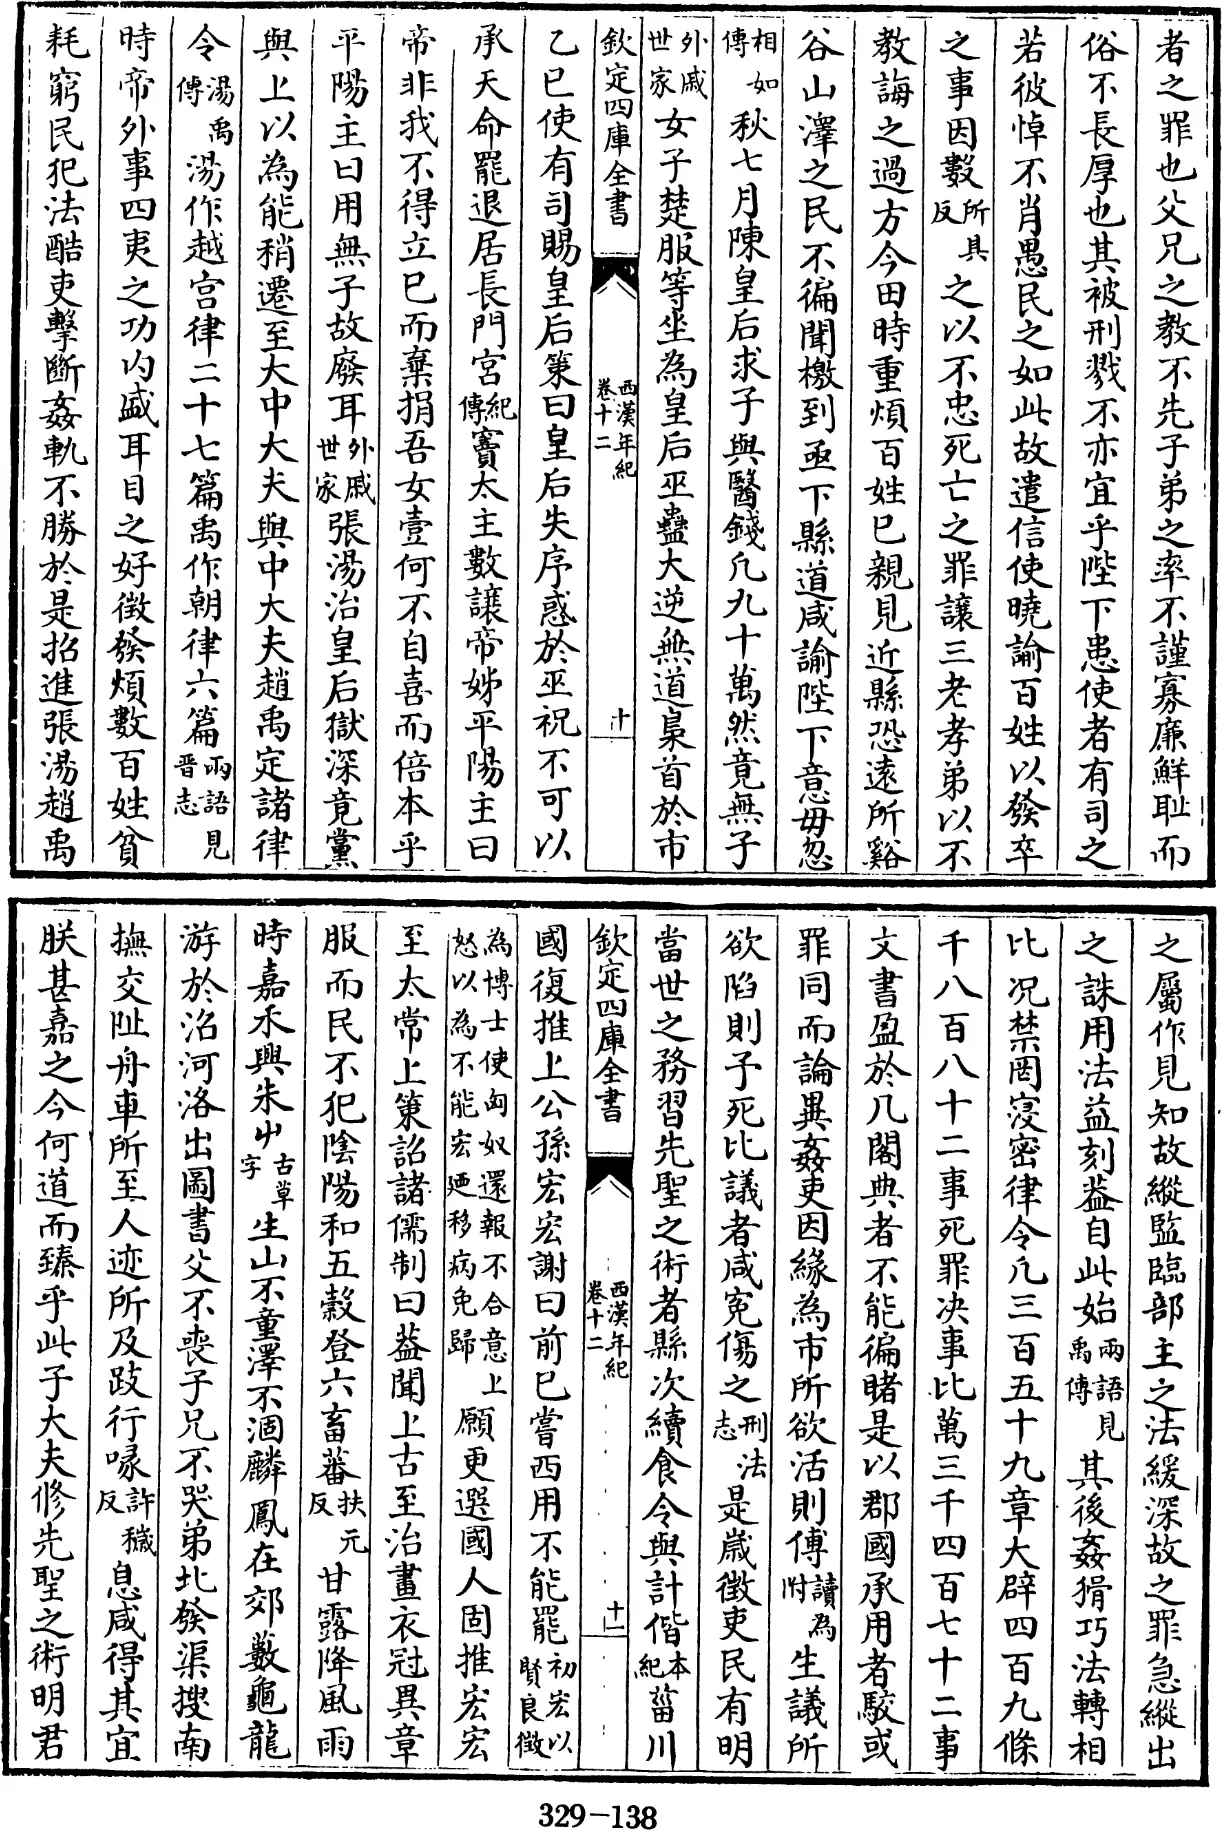 者之罪也父兄之教不先子弟之率不謹寡廉鮮恥而
俗不長厚也其被刑戮不亦宜乎陛下患使者有司之
若彼悼不肖愚民之如此故遣信使曉諭百姓以發卒
之事因數所具反之以不忠死亡之罪讓三老孝弟以不
教誨之過方今田時重煩百姓已親見近縣恐遠所谿
谷山澤之民不徧聞檄到亟下縣道咸諭陛下意毋忽
相如傳秋七月陳皇后求子與醫錢凡九十萬然竟無子
外戚世家女子楚服等坐為皇后巫蠱大逆無道梟首於市
欽定四庫全書
西漢年紀
卷十二
十
乙巳使有司賜皇后策曰皇后失序惑於巫祝不可以
承天命罷退居長門宮紀傳竇太主數讓帝姊平陽主曰
帝非我不得立已而棄捐吾女壹何不自喜而倍本乎
平陽主曰用無子故廢耳外戚世家張湯治皇后獄深竟黨
與上以為能稍遷至大中大夫與中大夫趙禹定諸律
令湯禹傳湯作越宮律二十七篇禹作朝律六篇兩語見晋志
時帝外事四夷之功内盛耳目之好徵發煩數百姓貧
耗窮民犯法酷吏擊斷姦軌不勝於是招進張湯趙禹
之屬作見知故縱監臨部主之法緩深故之罪急縱出
之誅用法益刻葢自此始兩語見禹傳其後姦猾巧法轉相
比况禁罔寖密律令凡三百五十九章大辟四百九條
千八百八十二事死罪决事比萬三千四百七十二事
文書盈於几閣典者不能徧睹是以郡國承用者駮或
罪同而論異姦吏因緣為市所欲活則傅讀為附生議所
欲陷則予死比議者咸寃傷之刑法志是歲徵吏民有明
當世之務習先聖之術者縣次續食令與計偕本紀菑川
欽定四庫全書
西漢年紀
卷十二
十一
國復推上公孫宏宏謝曰前已嘗西用不能罷初宏以賢良徵
為博士使匈奴還報不合意上怒以為不能宏廼移病免歸願更選國人固推宏宏
至太常上策詔諸儒制曰葢聞上古至治畫衣冠異章
服而民不犯陰陽和五穀登六畜蕃扶元反甘露降風雨
時嘉禾興朱屮古草字生山不童澤不涸麟鳳在郊藪龜龍
游於沼河洛出圖書父不喪子兄不哭弟北發渠搜南
撫交阯舟車所至人迹所及跂行喙許穢反息咸得其宜
朕甚嘉之今何道而臻乎此子大夫修先聖之術明君
329-138